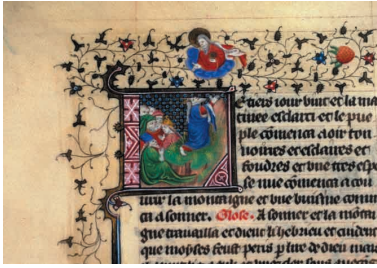 E tiers iour vint et la ma
tinee esclarci et le pue
ple cōmenca a oir ton
noirres et esclaires et
foudres et vne tres espe
se nue cōmenca a cou
urir la montaigne et vne buisine comm
ca a sonner. Glose. A sonner et la mōtai
gne trauailla et dient li hebrieu et cuident
que moyses feust peris p lux de dieu mais